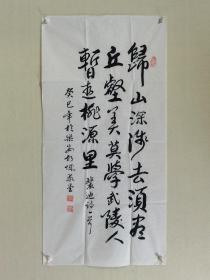 歸山深淺去須盡
丘壑美莫學武陵人
暫遊桃源里 裴迪詩一首
癸巳年於